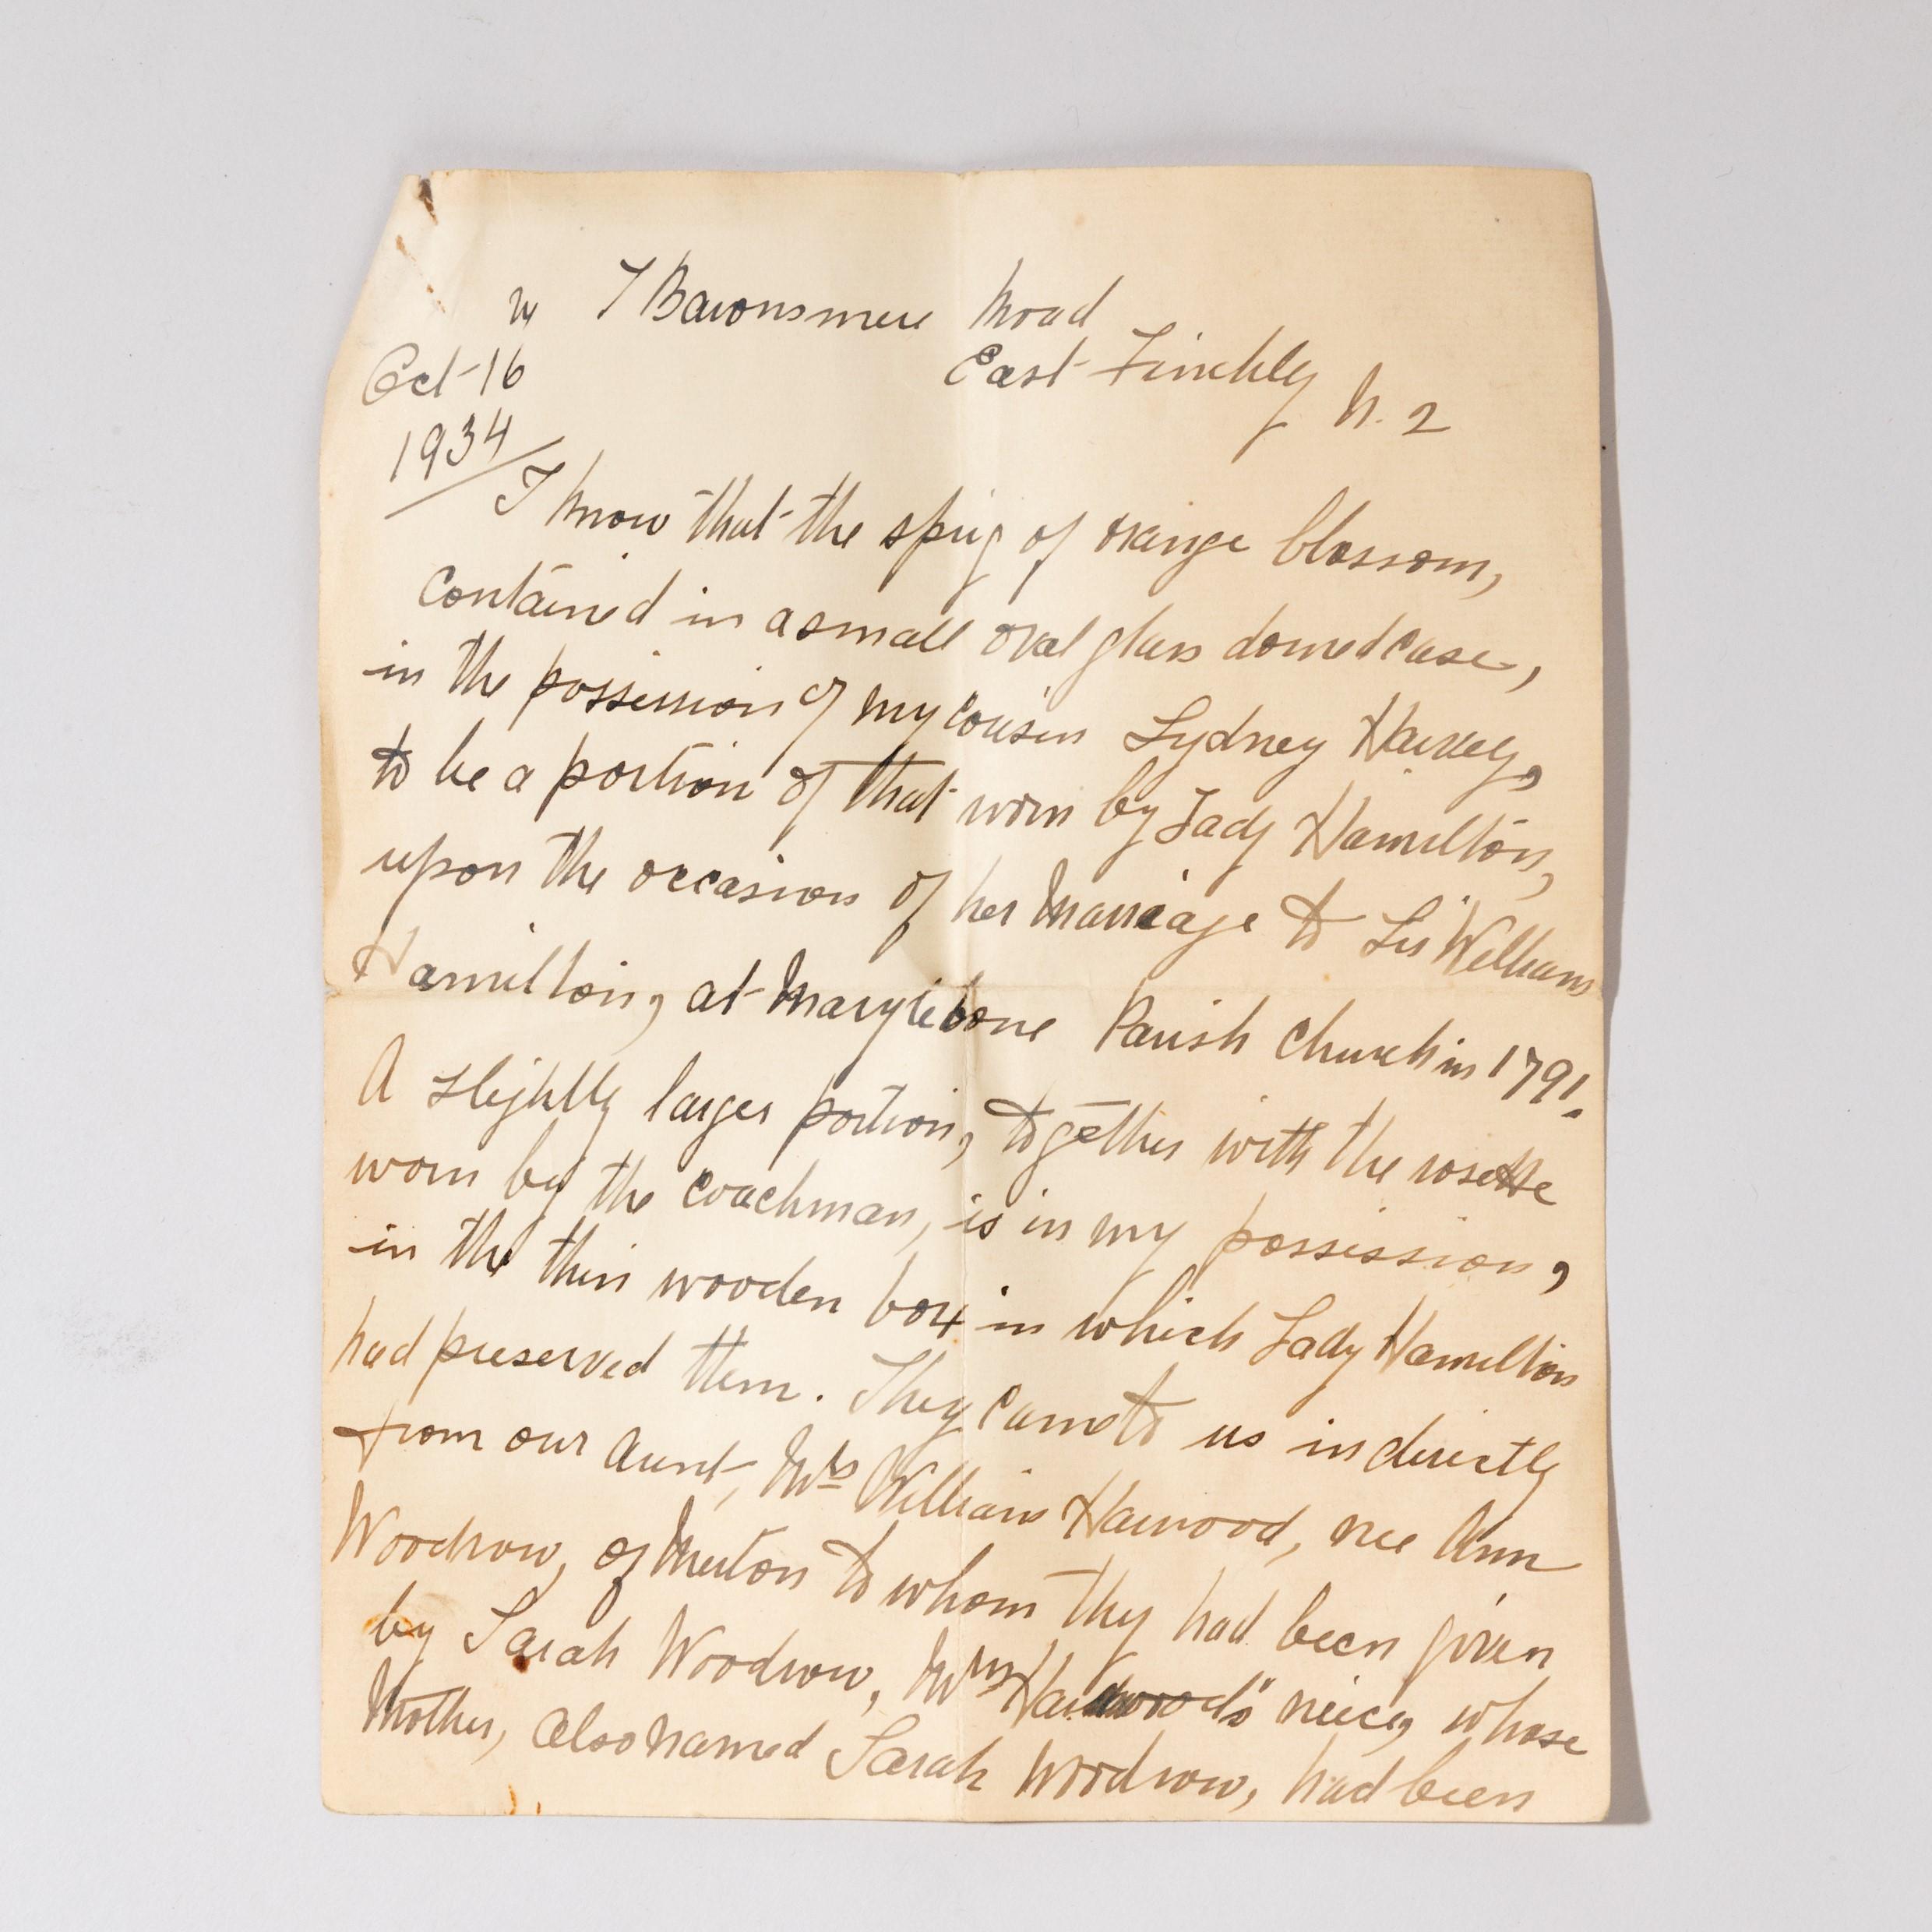 7 Baronsmere Road
East Finchley N. 2
Oct 16
1934
I know that the sprig of orange blossom,
contained in a small oval glass domed case,
in the possession of my cousin Sydney Harvey,
to be a portion of that worn by Lady Hamilton,
upon the occasion of her Marriage to Sir William
Hamilton, at Marylebone Parish Church in 1791.
A slightly larger portion, together with the rosette
worn by the coachman, is in my possession,
in the thin wooden box in which Lady Hamilton
had preserved them. They came to us indirectly
from our Aunt, Mrs William Harwood, nee Ann
Woodrow, of Merton to whom they had been given
by Sarah Woodrow, Mrs Harwood's neice, whose
Mother, also named Sarah Woodrow, had been